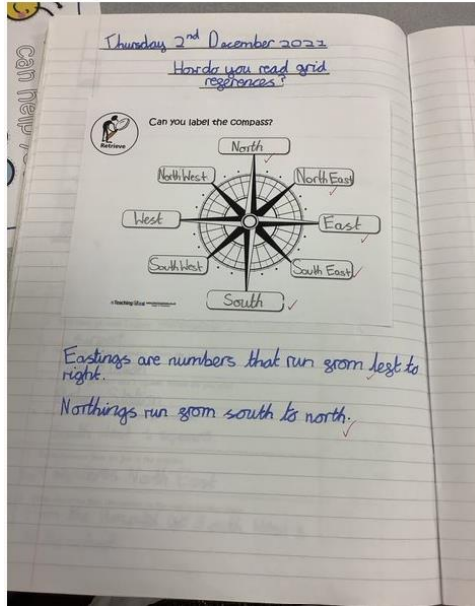 can help
Thursday 2nd December 2022
How do you read grid
references?
Retrieve
Can you label the compass?
North
North West
North East
West
East
South West
South East
South
Eastings are numbers that run from left to
right.
Northings run from south to north.